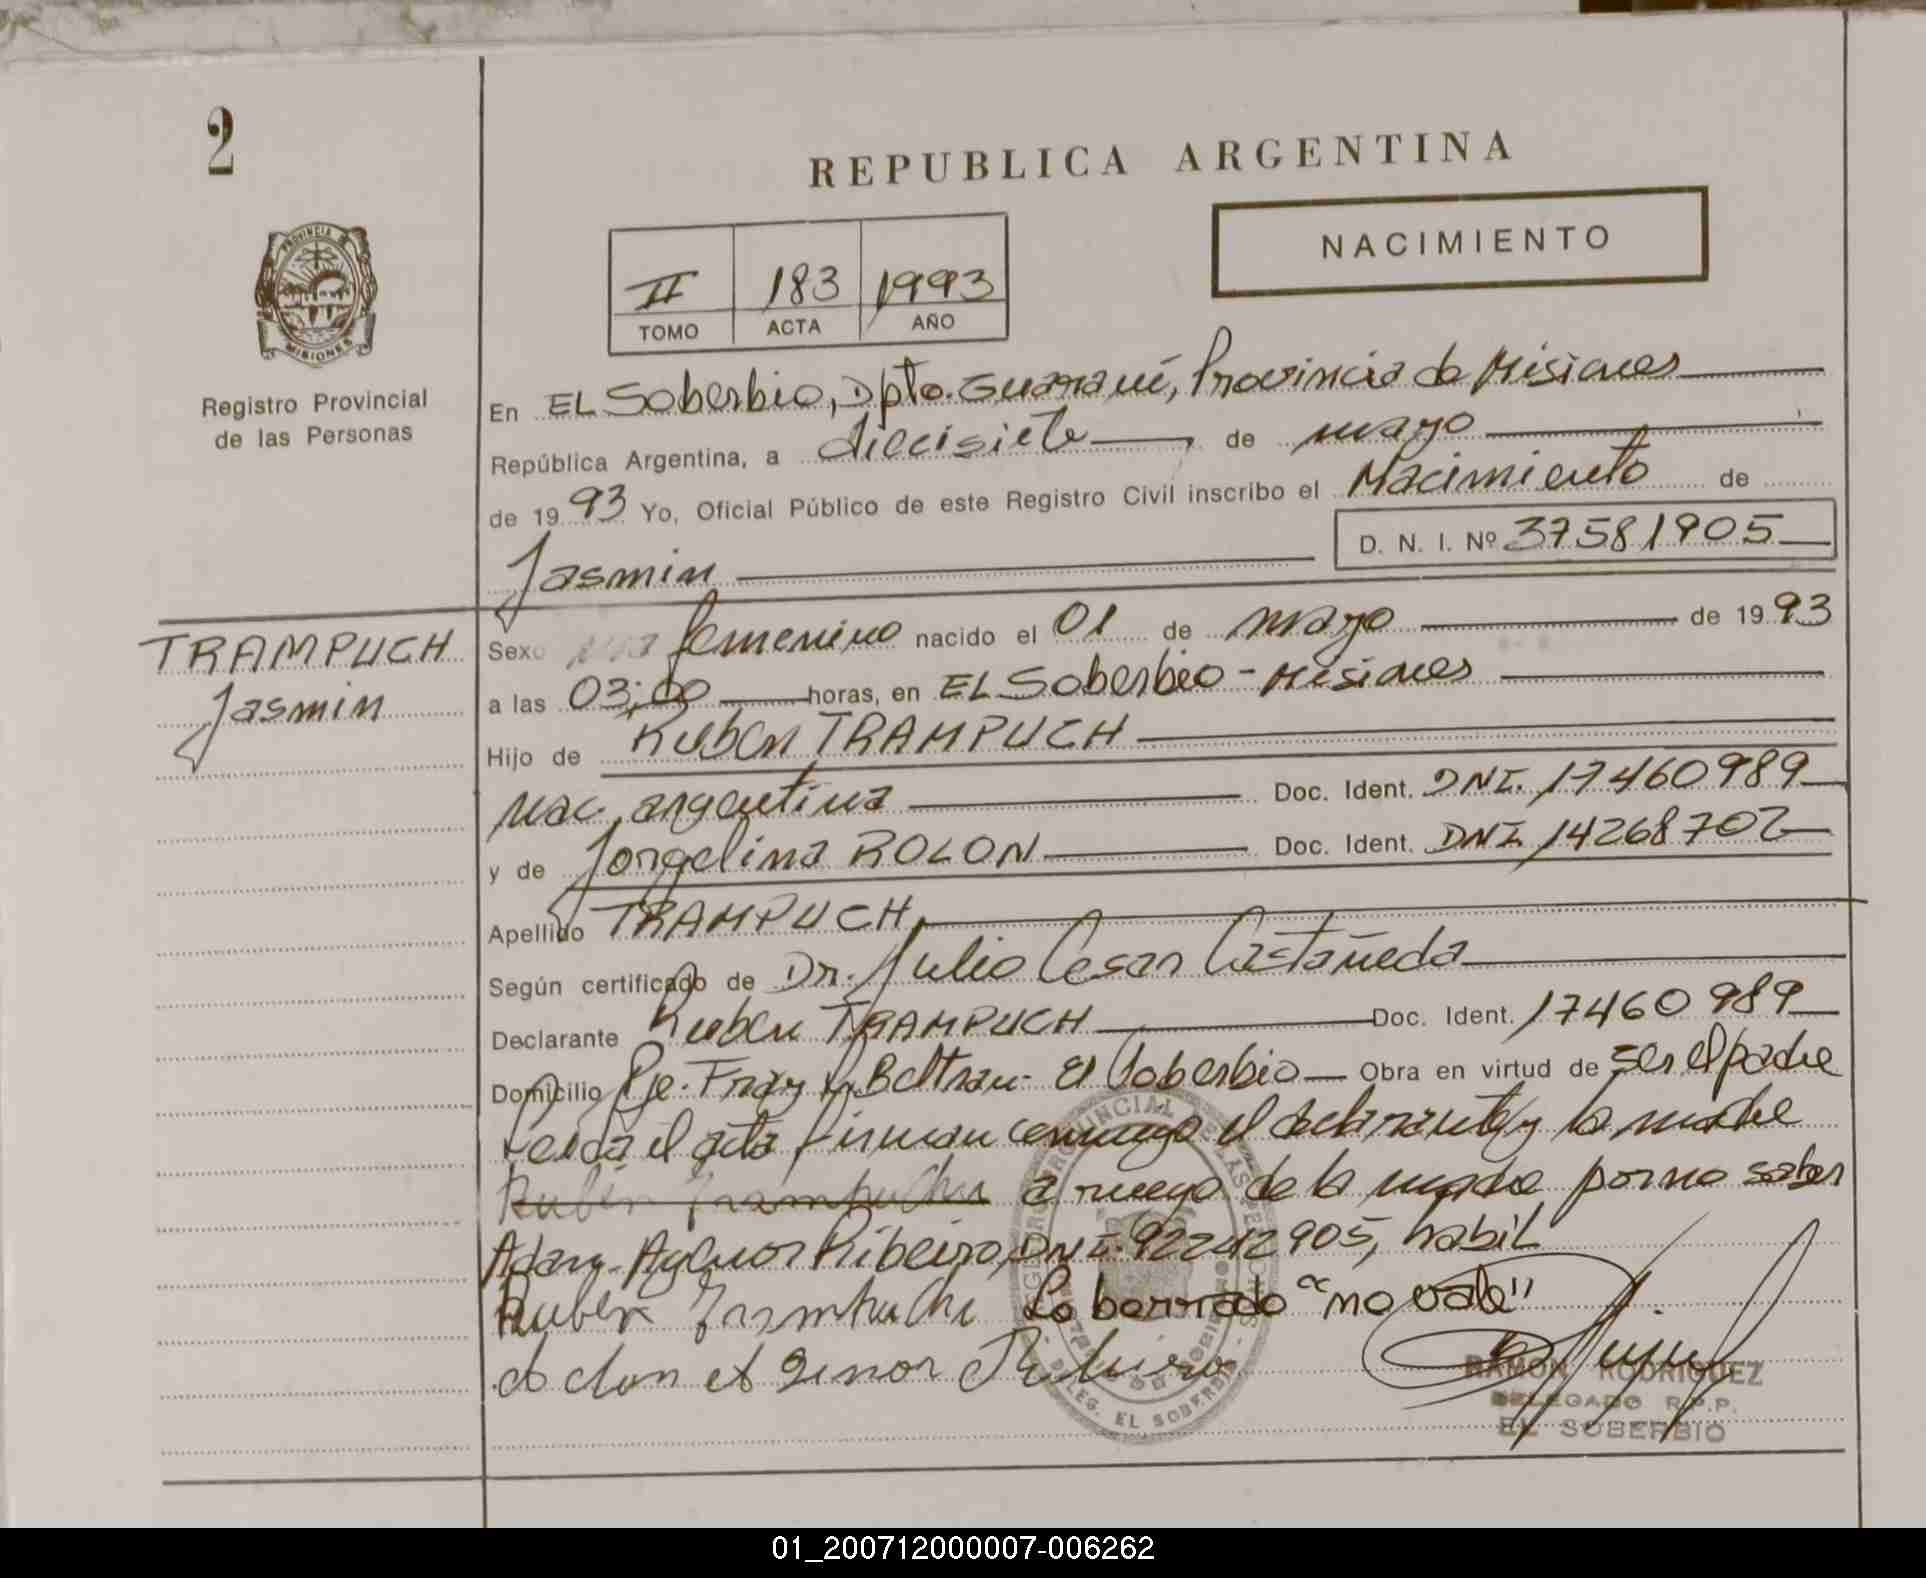 2
REPUBLICA ARGENTINA
NACIMIENTO
II 183 1993
TOMO ACTA AÑO
PROVINCIA DE
MISIONES
Registro Provincial
de las Personas
En EL Soberbio, Dpto. Guaraní, Provincia de Misiones
República Argentina, a diecisiete de mayo
de 1993 Yo, Oficial Público de este Registro Civil inscribo el Nacimiento de
Jasmin D. N. I. Nº 37581905
TRAMPUCH
Jasmin
Sexo femenino nacido el 01 de mayo de 1993
a las 03;00 horas, en EL Soberbio - Misiones
Hijo de Ruben TRAMPUCH
nac. argentina Doc. Ident. DNI. 17460989
y de Jorgelina ROLON Doc. Ident. DNI 14268702
Apellido TRAMPUCH
Según certificado de Dr. Julio Cesar Castañeda
Declarante Ruben TRAMPUCH Doc. Ident. 17460989
Domicilio Pje. Fray L. Beltran - El Soberbio Obra en virtud de ser el padre
Leida el acta firman conmigo el declarante y la madre
Rubén Trampuch a ruego de la madre por no saber
Adan Ribeiro, DNI. 92242905, habil
Ruben Trampuch Lo borrado "no vale"
Ribeiro
RAMON RODRIGUEZ
DELEGADO R.P.P.
EL SOBERBIO
DELEG. EL SOBERBIO
01_200712000007-006262